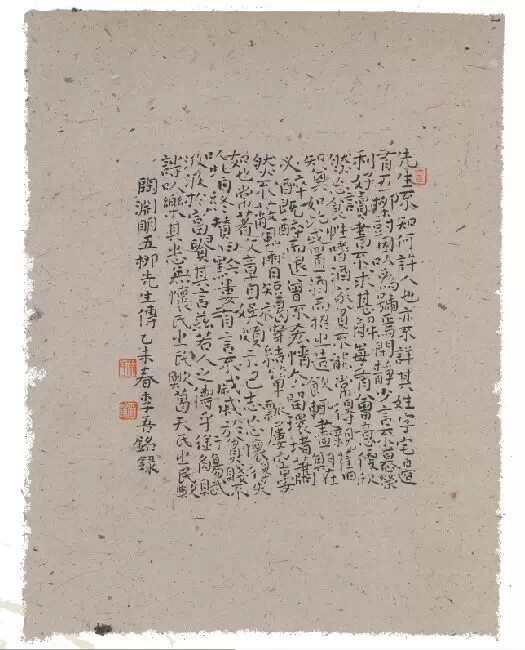 先生不知何許人也亦不詳其姓字宅邊
有五柳樹因以為號焉閒靜少言不慕榮
利好讀書不求甚解每有會意便欣
然忘食性嗜酒家貧不能常得親舊
知其如此或置酒而招之造飲輒盡期在
必醉既醉而退曾不吝情去留環堵蕭
然不蔽風日短褐穿結簞瓢屢空晏
如也常著文章自娛頗示己志忘懷得失
以此自終贊曰黔婁有言不戚戚於貧賤不
汲汲於富貴其言茲若人之儔乎銜觴賦
詩以樂其志無懷氏之民歟葛天氏之民歟
陶淵明五柳先生傳乙未春李銘錄